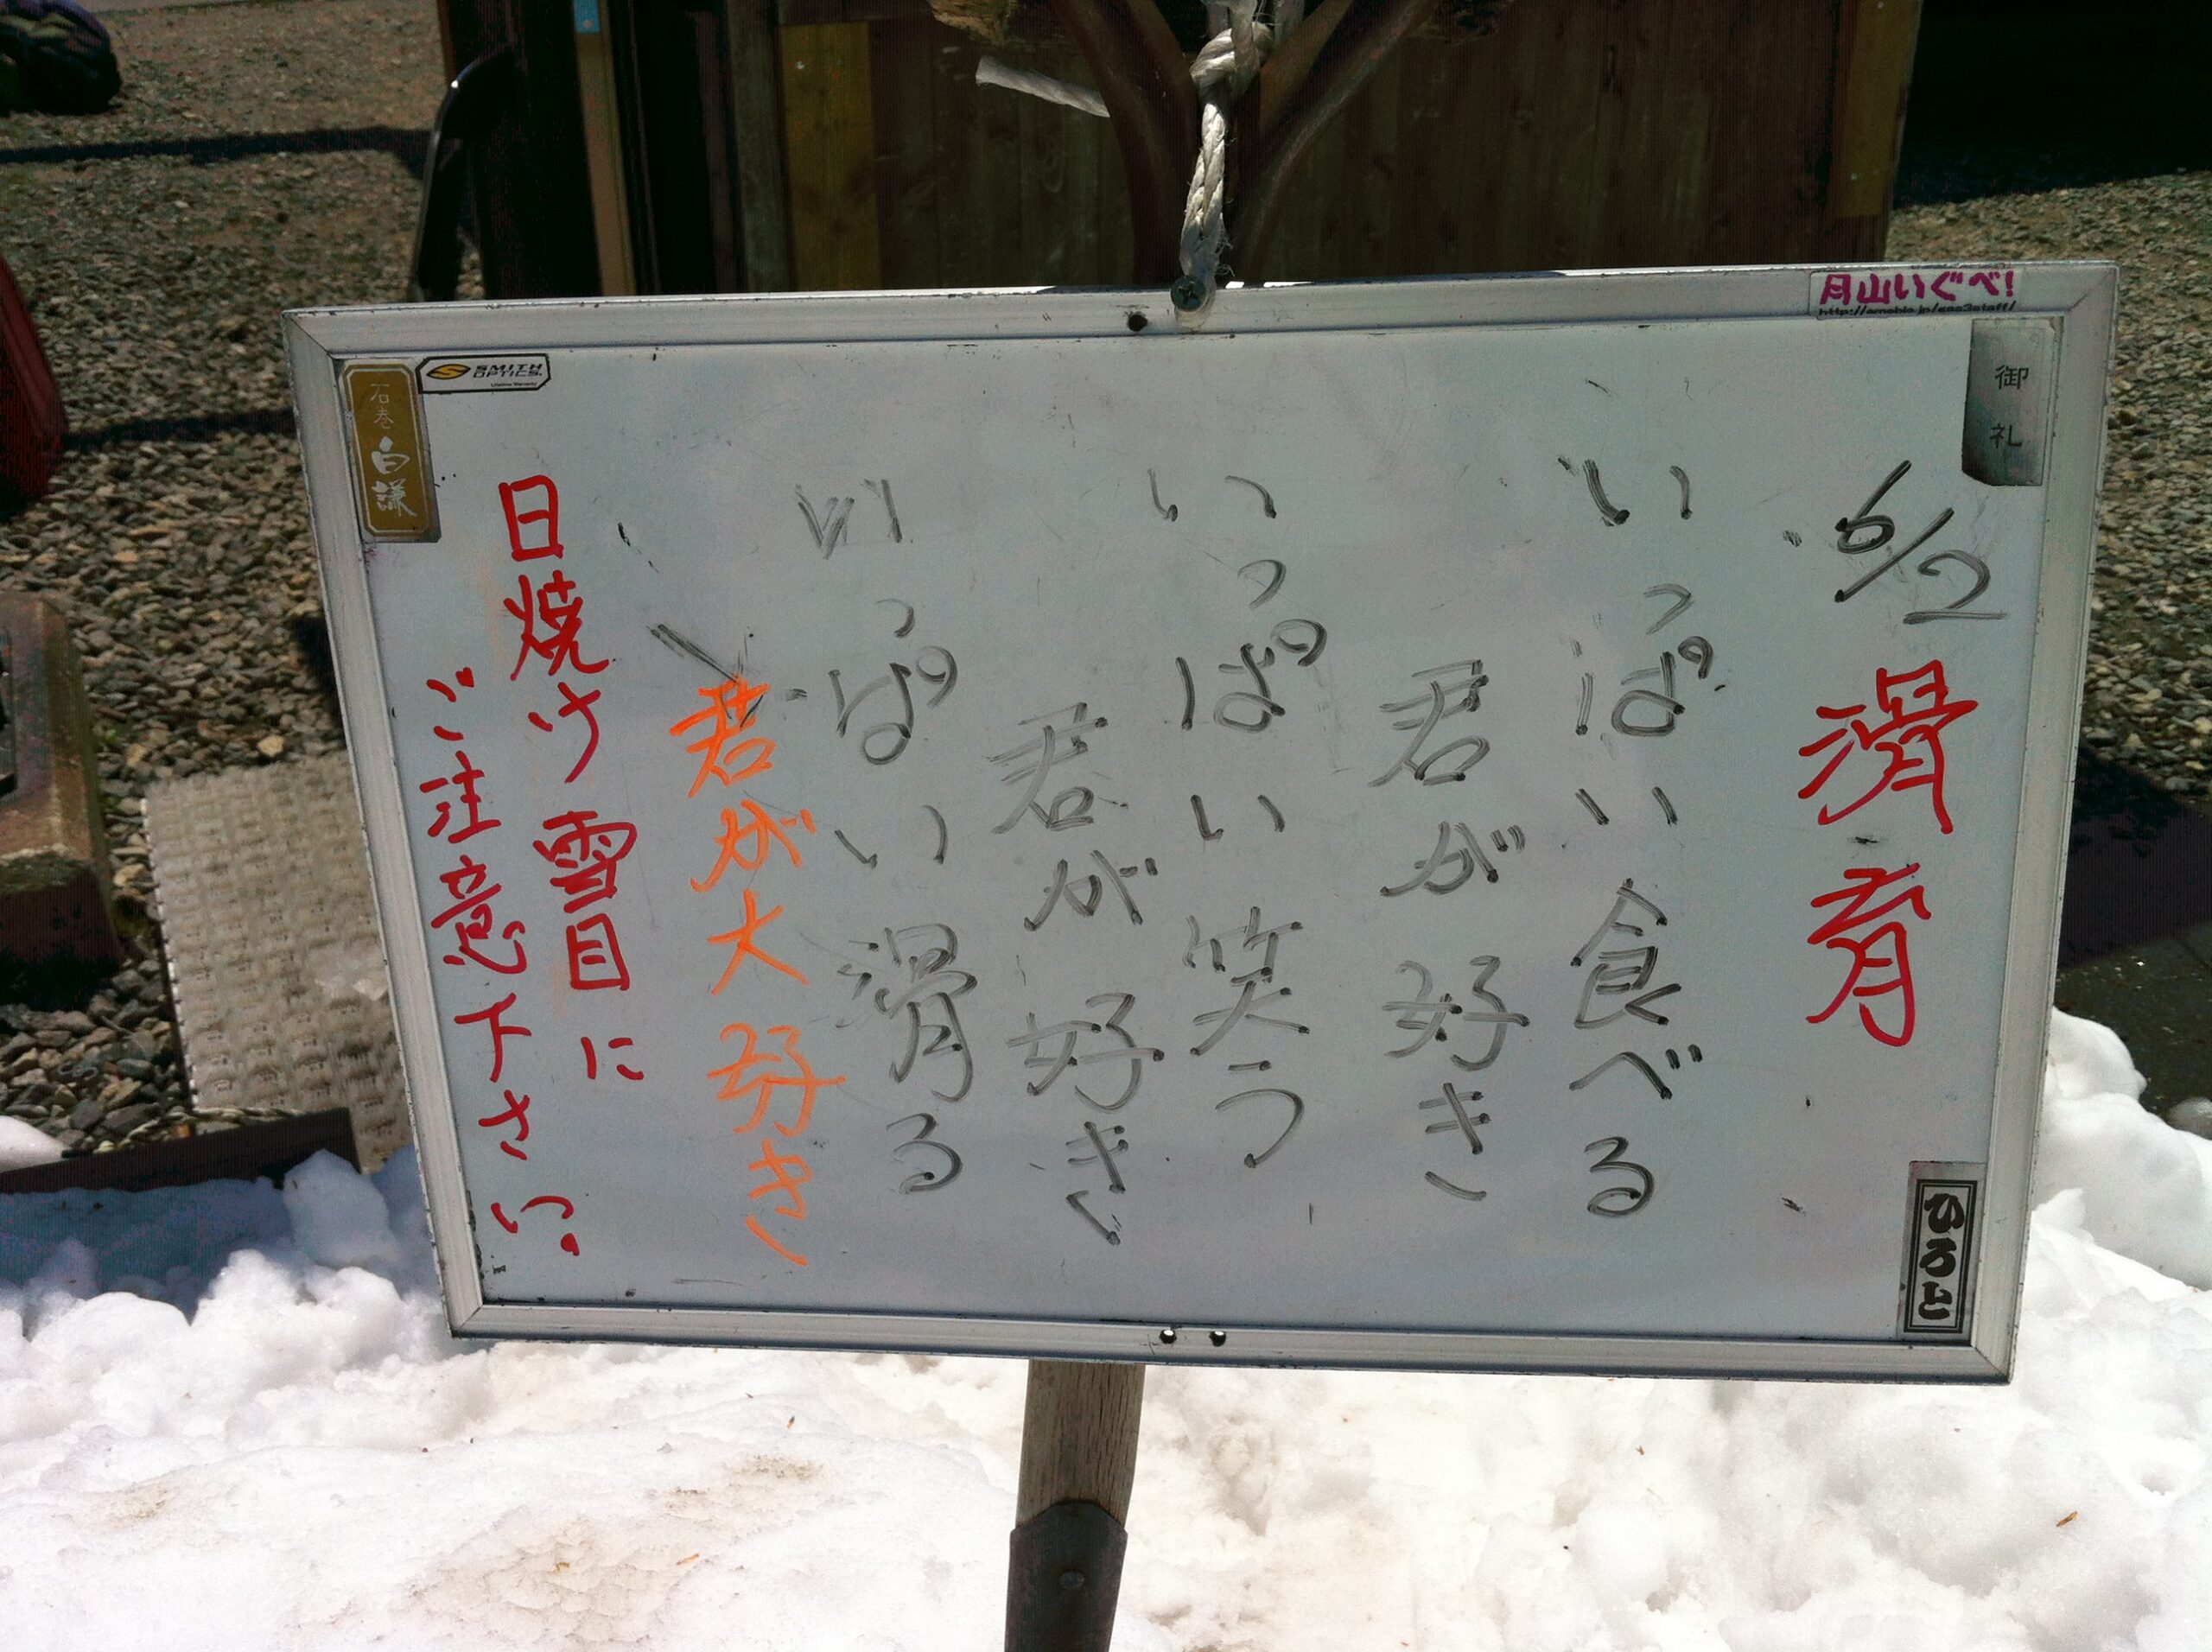 月山いぐべ!
御礼
6/2 滑育
いっぱい食べる
君が好き
いっぱい笑う
君が好き
いっぱい滑る
君が大好き
日焼け雪目に
ご注意下さい。
ひろと
SMITH
OPTICS
石巻
白謙